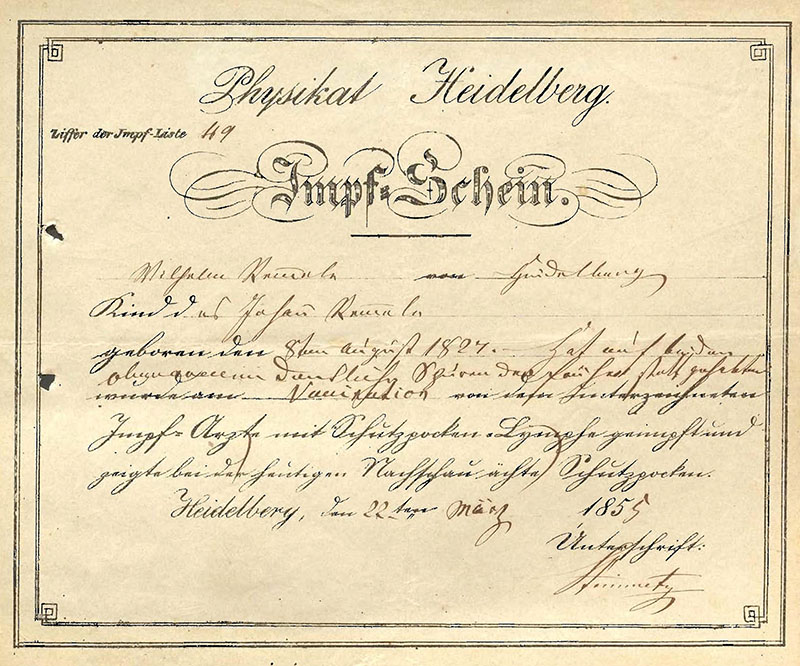 Physikat Heidelberg.
Ziffer der Impf-Liste 49
Impf-Schein.
Wilhelm Remmele von Heidelberg
Kind des Johann Remmele
geboren den 8ten August 1827. Hat auf beiden
deutliche Spuren der früher statt gehabten
wurde am Vaccination von dem Unterzeichneten
Impf-Arzte mit Schutzpocken-Lymphe geimpft und
zeigte bei der heutigen Nachschau ächte Schutzpocken.
Heidelberg, den 22ten März 1855
Unterschrift: